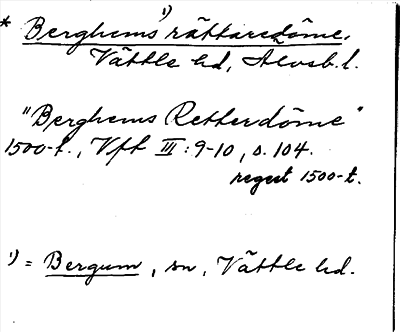 1)
* Berghems rättaredöme.
Vättle hd, Älvsb. l.
"Berghems Retterdöme"
1500-t., Vft III : 9-10, s. 104.
regest 1500-t.
1) = Bergum, sn, Vättle hd.